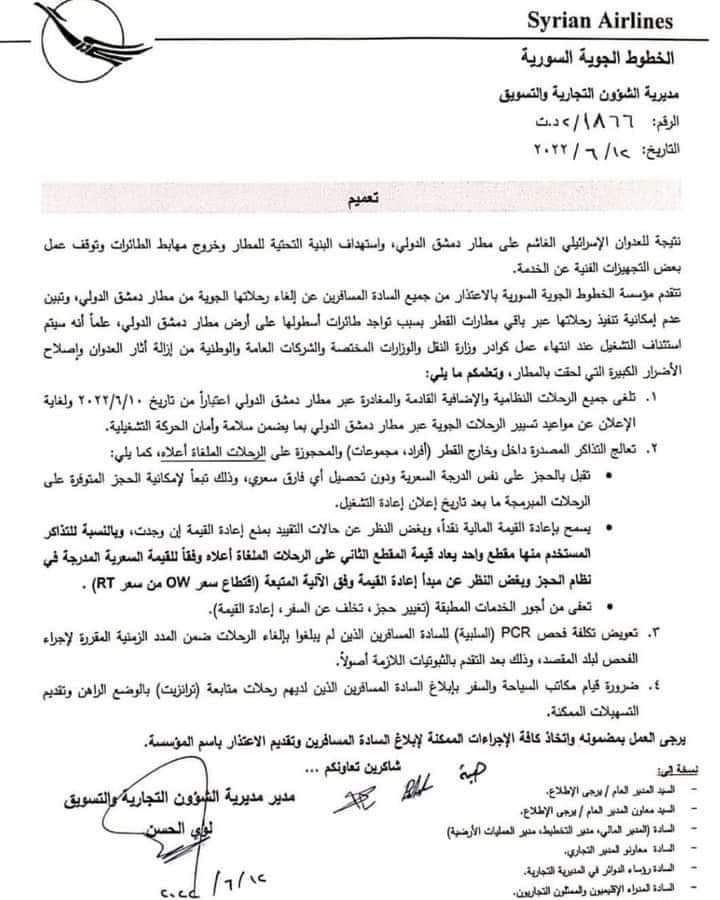 Syrian Airlines
الخطوط الجوية السورية
مديرية الشؤون التجارية والتسويق
الرقم: ١٨٦٦/ ٢ د.ت
التاريخ: ١٢/ ٦ / ٢٠٢٢
تعميم
نتيجة للعدوان الإسرائيلي الغاشم على مطار دمشق الدولي، واستهداف البنية التحتية للمطار وخروج مهابط الطائرات وتوقف عمل
بعض التجهيزات الفنية عن الخدمة.
تتقدم مؤسسة الخطوط الجوية السورية بالاعتذار من جميع السادة المسافرين عن إلغاء رحلاتها الجوية من مطار دمشق الدولي، وتبين
عدم إمكانية تنفيذ رحلاتها عبر باقي مطارات القطر بسبب تواجد طائرات أسطولها على أرض مطار دمشق الدولي، علماً أنه سيتم
استئناف التشغيل عند انتهاء عمل كوادر وزارة النقل والوزارات المختصة والشركات العامة والوطنية من إزالة أثار العدوان وإصلاح
الأضرار الكبيرة التي لحقت بالمطار، ونعلمكم ما يلي:
١. تلغى جميع الرحلات النظامية والإضافية القادمة والمغادرة عبر مطار دمشق الدولي اعتباراً من تاريخ ٢٠٢٢/٦/١٠ ولغاية
الإعلان عن مواعيد تسيير الرحلات الجوية عبر مطار دمشق الدولي بما يضمن سلامة وأمان الحركة التشغيلية.
٢. تعالج التذاكر المصدرة داخل وخارج القطر (أفراد، مجموعات) والمحجوزة على الرحلات الملغاة أعلاه، كما يلي:
• تقبل بالحجز على نفس الدرجة السعرية ودون تحصيل أي فارق سعري، وذلك تبعاً لإمكانية الحجز المتوفرة على
الرحلات المبرمجة ما بعد تاريخ إعلان إعادة التشغيل.
• يسمح بإعادة القيمة المالية نقداً، وبغض النظر عن حالات التقييد بمنع إعادة القيمة إن وجدت، وبالنسبة للتذاكر
المستخدم منها مقطع واحد يعاد قيمة المقطع الثاني على الرحلات الملغاة أعلاه وفقاً للقيمة السعرية المدرجة في
نظام الحجز وبغض النظر عن مبدأ إعادة القيمة وفق الآلية المتبعة (اقتطاع سعر OW من سعر RT) .
• تعفى من أجور الخدمات المطبقة (تغيير حجز، تخلف عن السفر، إعادة القيمة).
٣. تعويض تكلفة فحص PCR (السلبية) للسادة المسافرين الذين لم يبلغوا بإلغاء الرحلات ضمن المدد الزمنية المقررة لإجراء
الفحص لبلد المقصد، وذلك بعد التقدم بالثبوتيات اللازمة أصولاً.
٤. ضرورة قيام مكاتب السياحة والسفر بإبلاغ السادة المسافرين الذين لديهم رحلات متابعة (ترانزيت) بالوضع الراهن وتقديم
التسهيلات الممكنة.
يرجى العمل بمضمونه واتخاذ كافة الإجراءات الممكنة لإبلاغ السادة المسافرين وتقديم الاعتذار باسم المؤسسة.
شاكرين تعاونكم ...
مدير مديرية الشؤون التجارية والتسويق
لؤي الحسن
٢٠٢٢ /٦/١٢
نسخة إلى:
- السيد المدير العام / يرجى الإطلاع.
- السيد معاون المدير العام / يرجى الإطلاع.
- السادة (المدير المالي، مدير التخطيط، مدير العمليات الأرضية)
- السادة معاونو المدير التجاري.
- السادة رؤساء الدوائر في المديرية التجارية.
- السادة المدراء الإقليميون والممثلون التجاريون.